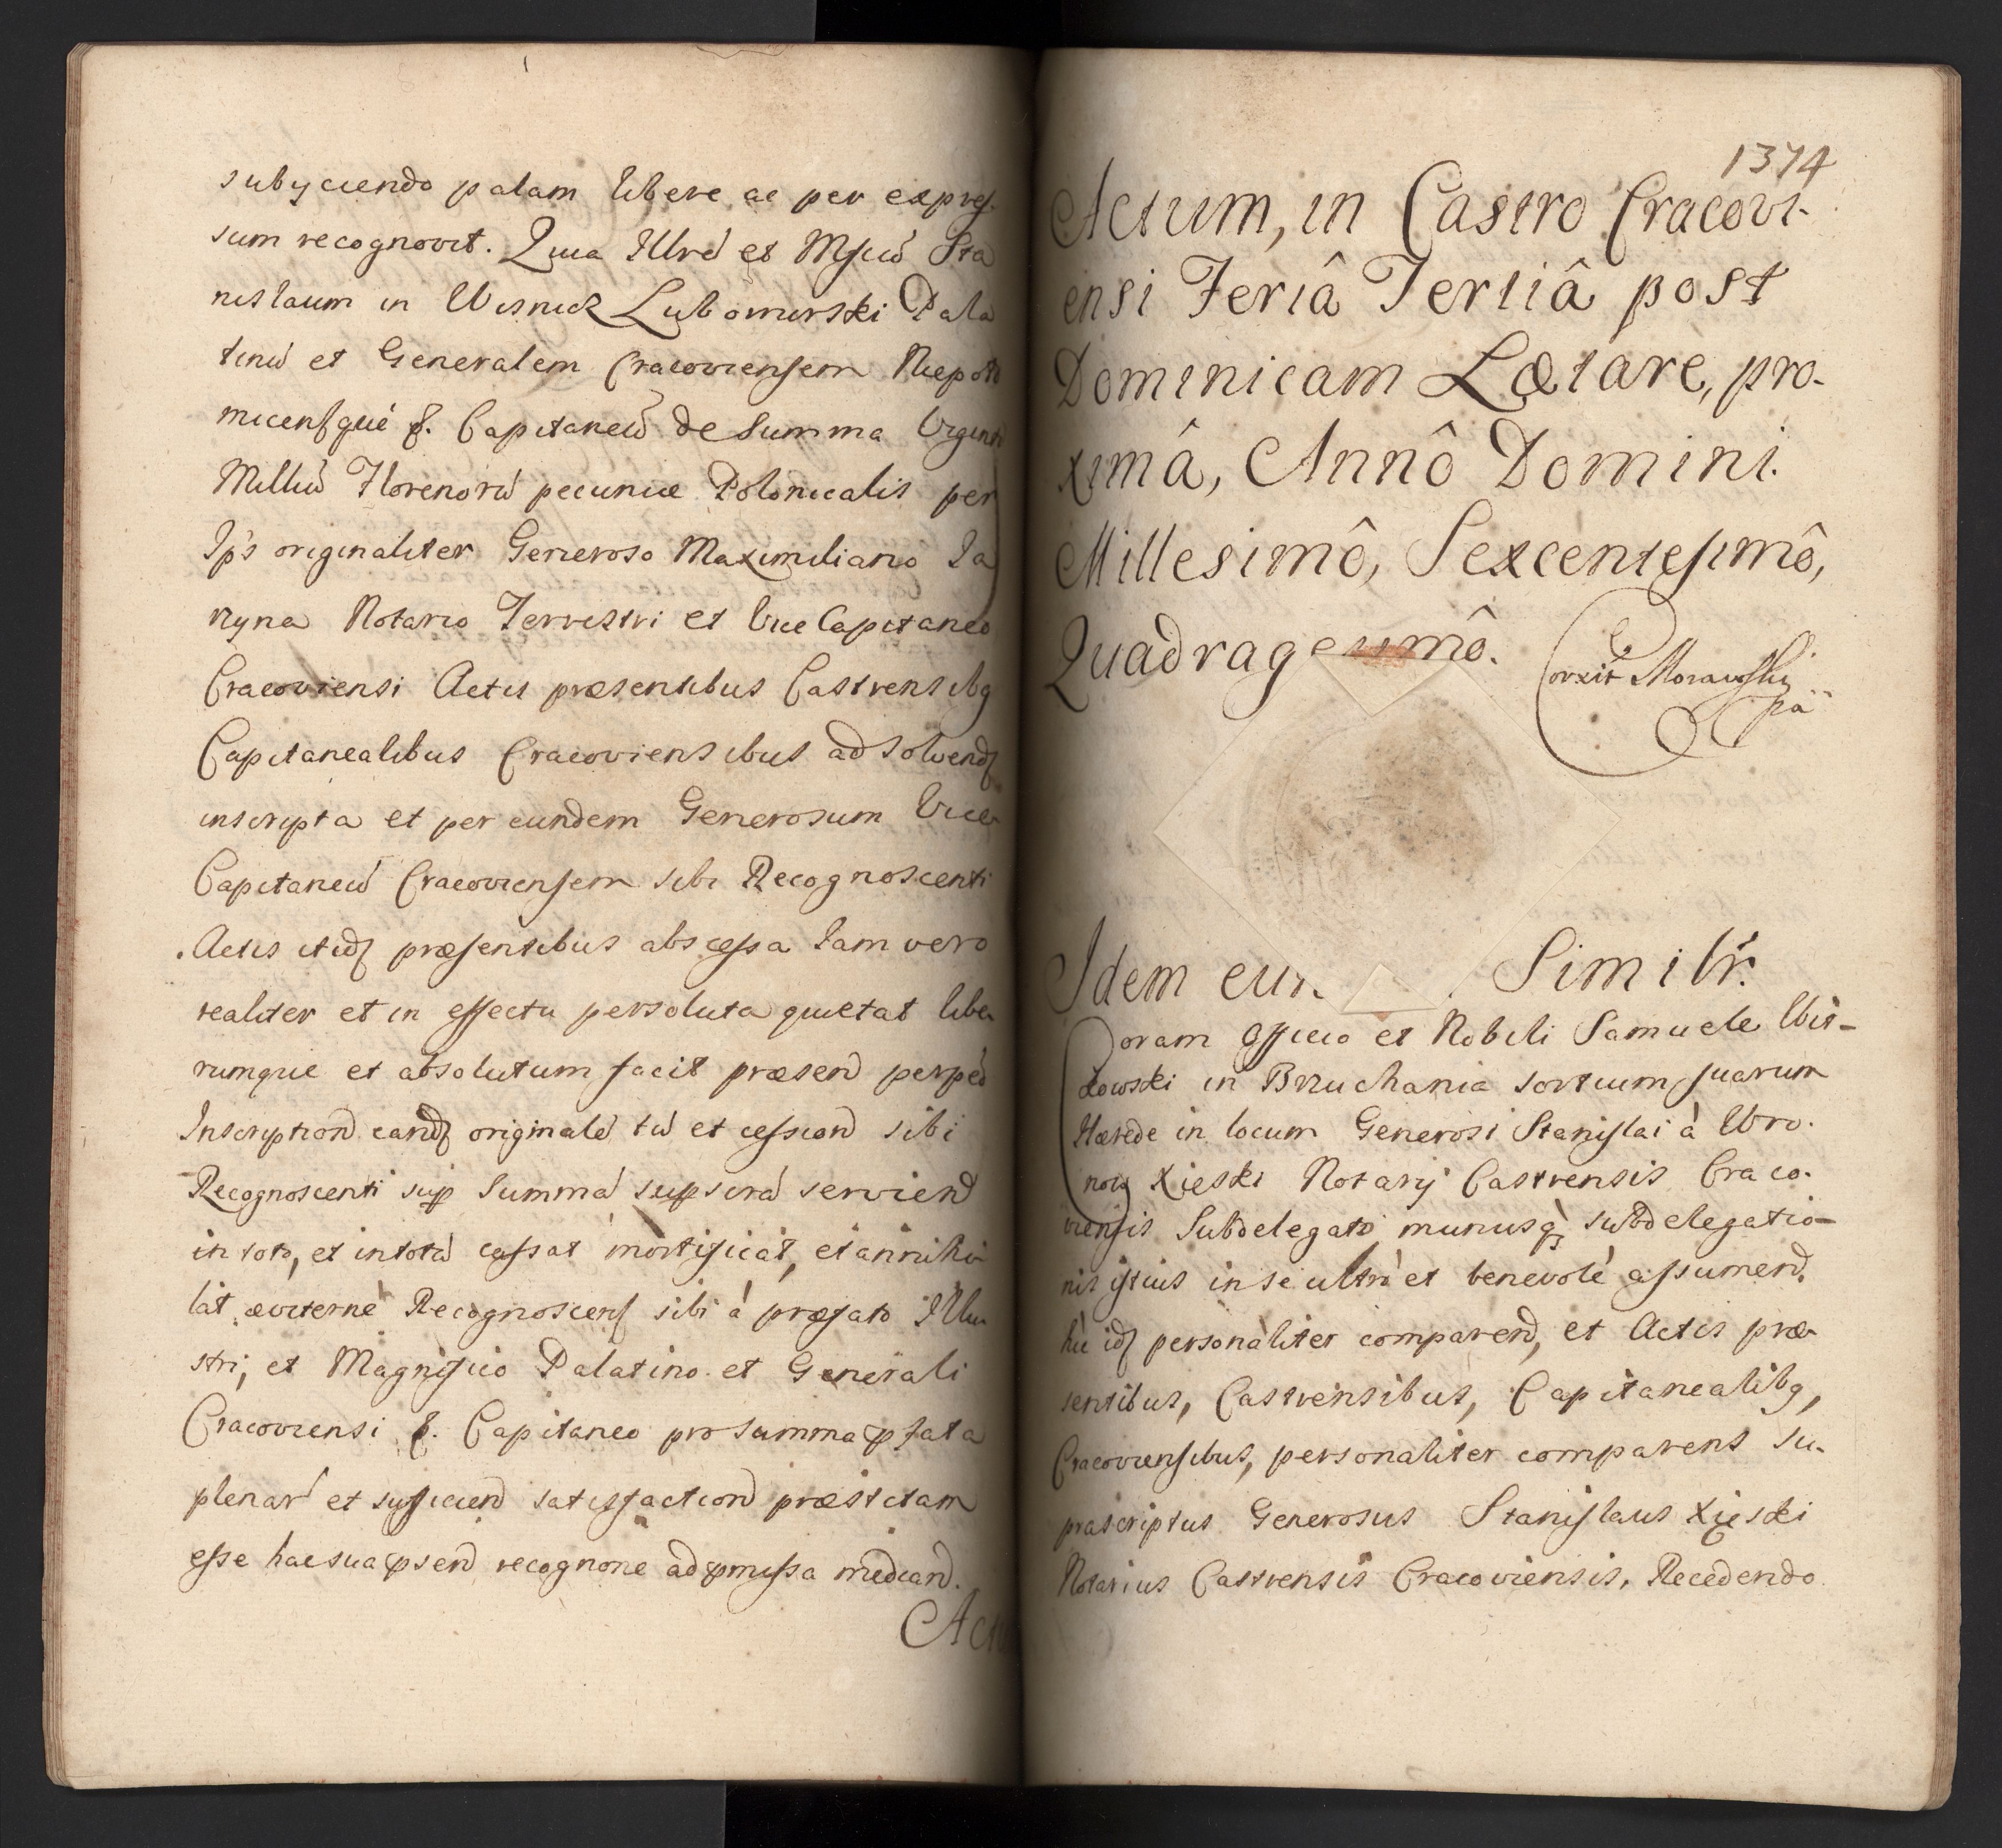 subyciendo palam libere ac per expres-
sum recognovit. Quia Illrē et Mgficū Sta
nislaum in Wisnicz Lubomirski Pala
tinū et Generalem Cracoviensem Niepoło
micensqué &. Capitaneū de Summa Viginti
Milliū Florenorū pecuniæ Polonicalis per
Ip's originaliter Generoso Maximiliano Ja
ryna Notario Terrestri et Vice Capitaneo
Cracoviensi Actis præsentibus Castrensibq
Capitanealibus Cracoviensibus ad solvendȝ
inscripta et per eundem Generosum Vice
Capitaneū Cracoviensem sibi Recognoscenti
Actis itidȝ præsentibus abscessa Jam vero
realiter et in effectu persoluta quietat libe-
rumque et absolutum facit præsend perped
Inscriptiond eandȝ originalē tū et cessiond sibi
Recognoscenti sup Summā supscrā serviend
in toto, et in totū cassat mortificat, et annihi-
lat æviternè Recognoscens sibi à præfato Illu-
stri, et Magnifico Palatino et Generali
Cracoviensi &. Capitaneo pro summa pfata
plenar et sufficiend satisfactiond præstitam
esse hac sua psend recognone ad pmissa mediand.
Actu
1374
Actum, in Castro Cracovi-
ensi Feriâ Tertiâ post
Dominicam Lætare, pro-
ximâ, Annô Domini.
Millesimô, Sexcentesimô,
Quadragesimô.
Corxit Morawski
pa
Idem eun Similr.
Coram officio et Nobili Samuele Wit-
kowski in Bruchania sortium suarum
Hærede in locum Generosi Stanislai à Wro-
now Xięski Notarij Castrensis Craco-
viensis Subdelegato munusq subdelegatio-
nis istius in se ultrò et benevolè assumend,
hic idȝ personaliter comparend, et Actis præ-
sentibus, Castrensibus, Capitanealibq,
Cracoviensibus, personaliter comparens su-
prascriptus Generosus Stanislaus Xięski
Notarius Castrensis Cracoviensis, Recedendo